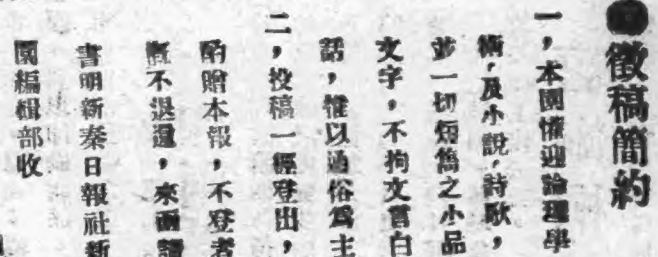 徵稿簡約
一，本園懽迎論理學
術，及小說，詩歌，
並一切短雋之小品
文字，不拘文言白
話，惟以通俗為主
二，投稿一經登出，
酌贈本報，不登者
概不退還，來函請
書明新秦日報社新
園編輯部收